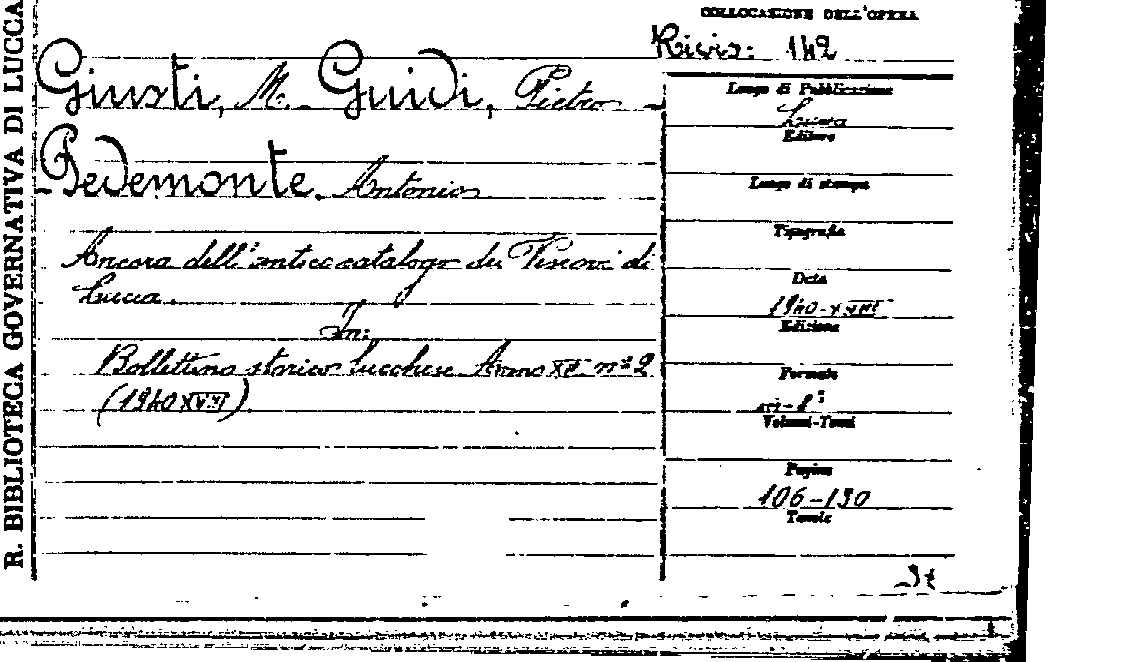 R. BIBLIOTECA GOVERNATIVA DI LUCCA
COLLOCAZIONE DELL'OPERA
Rivis: 142
Giusti, M. - Guidi, Pietro -
Pedemonte, Antonio
Ancora dell'antico catalogo dei Vescovi di
Lucca.
In:
Bollettino storico lucchese Anno XII nº 2
(1940 XVIII)
Luogo di Pubblicazione
Lucca
Editore
Luogo di stampa
Tipografia
Data
1940-XVIII
Edizione
Formato
in-8°
Volumi-Tomi
Pagine
106-130
Tavole